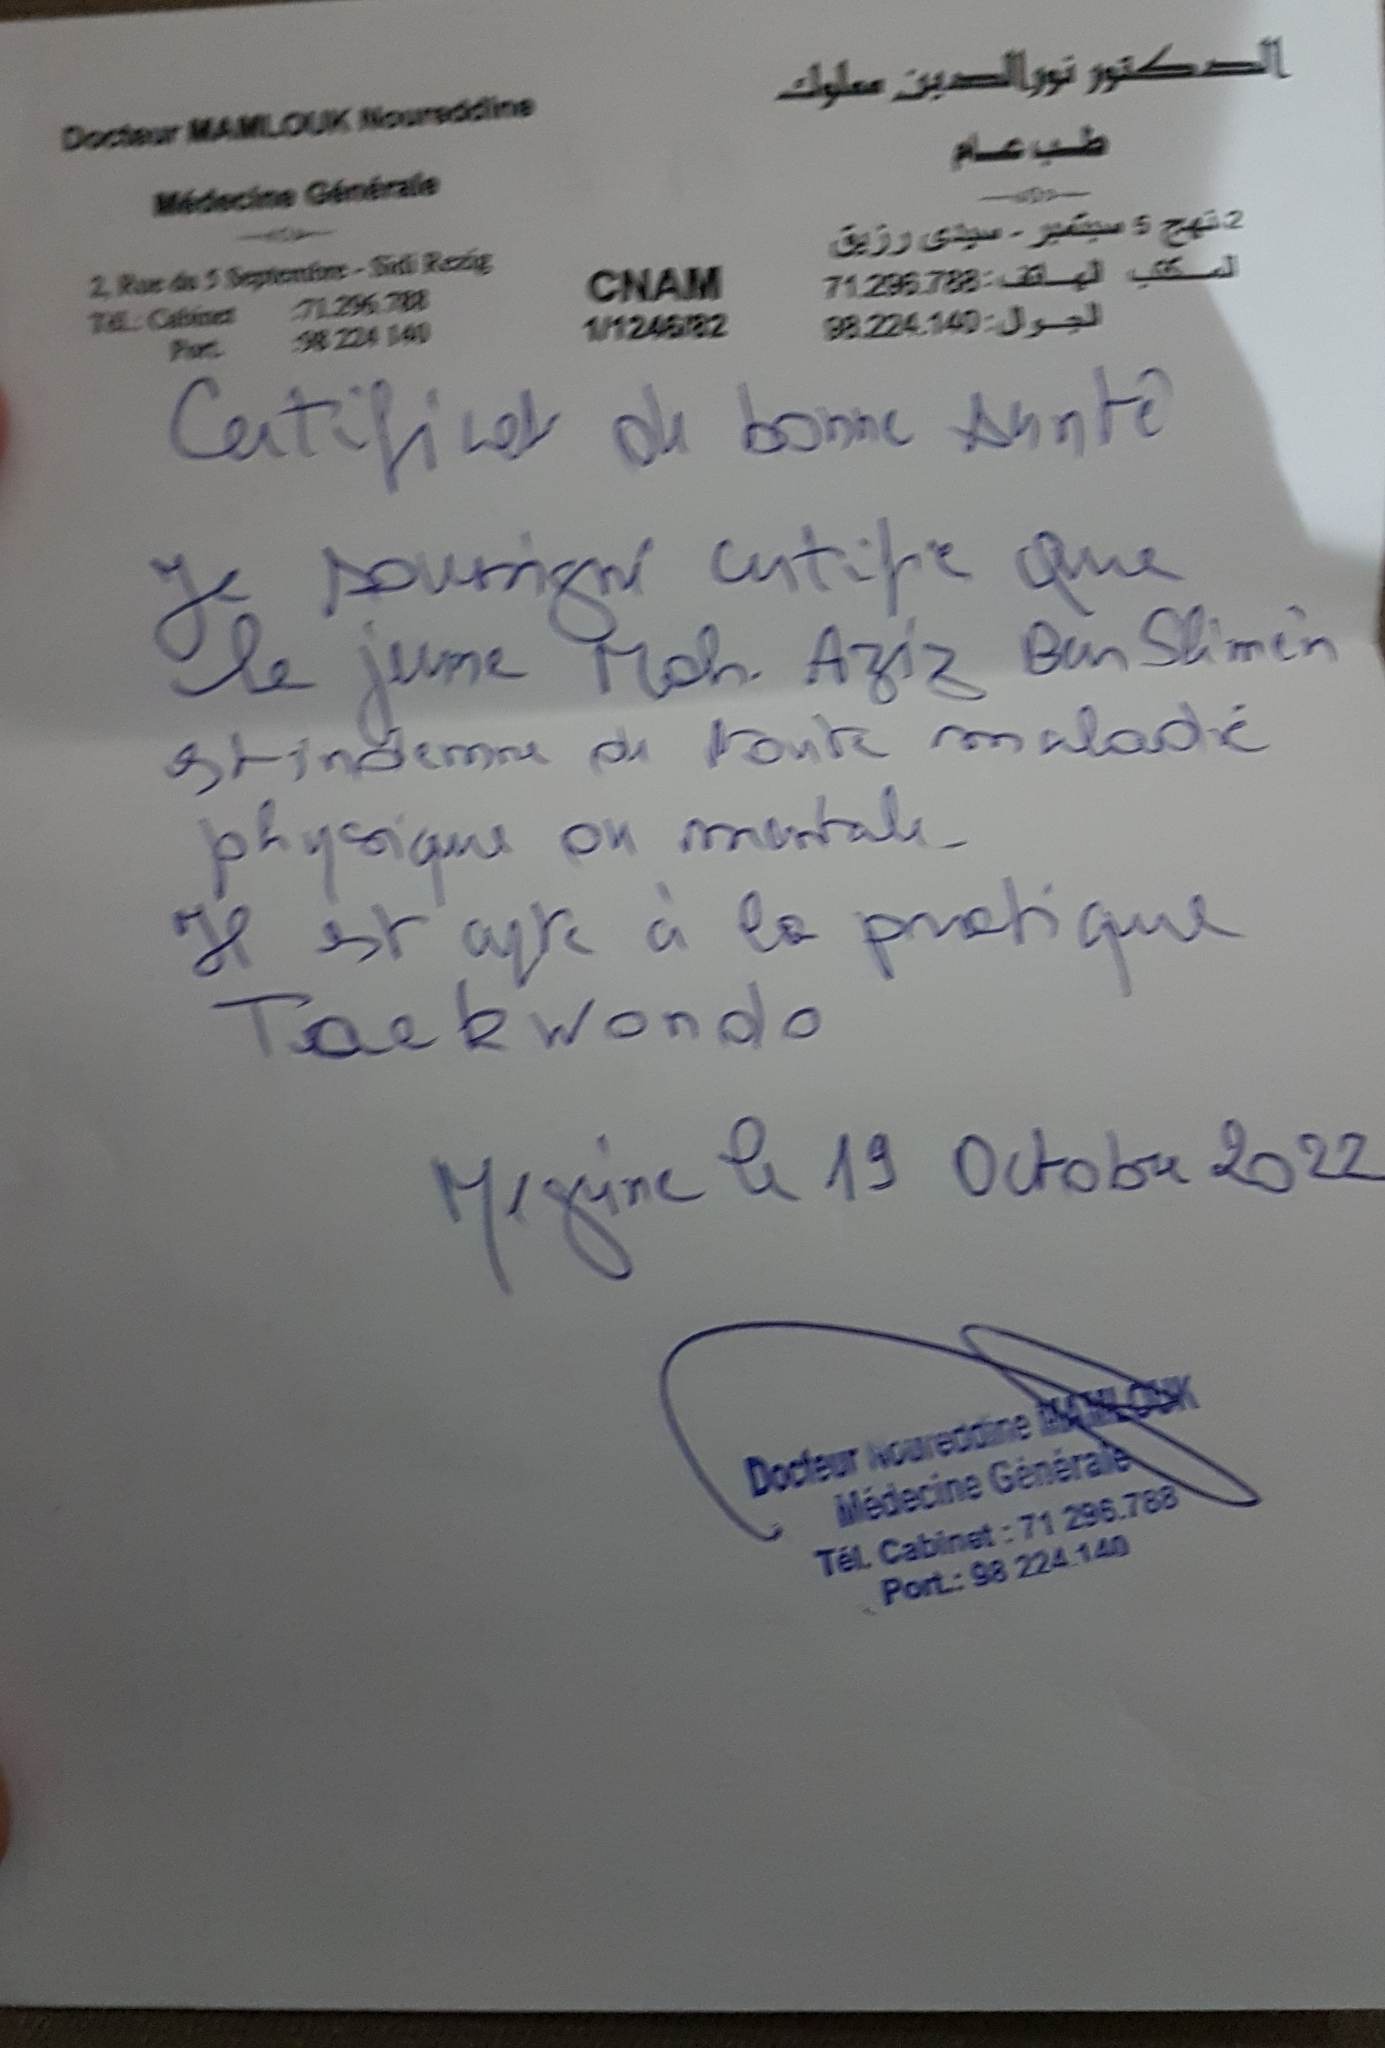 Docteur MAMLOUK Noureddine
Médecine Générale
2, Rue du 5 Septembre - Sidi Rezig
Tél.: Cabinet :71.296.788
Port. :98 224 140
CNAM
1/1246/82
الدكتور نورالدين مملوك
طب عام
2 نهج 5 سبتمبر - سيدي رزيق
الهاتف المكتب :71.296.788
الجوال :98.224.140
Certificat de bonne santé
Je soussigné certifie que
le jeune Moh. Aziz Ben Slimèn
est indemne de toute maladie
physique ou mentale
Il est apte à la pratique
Taekwondo
Megrine le 19 Octobre 2022
Docteur Noureddine MAMLOUK
Médecine Générale
Tél. Cabinet : 71 296.788
Port.: 98 224.140